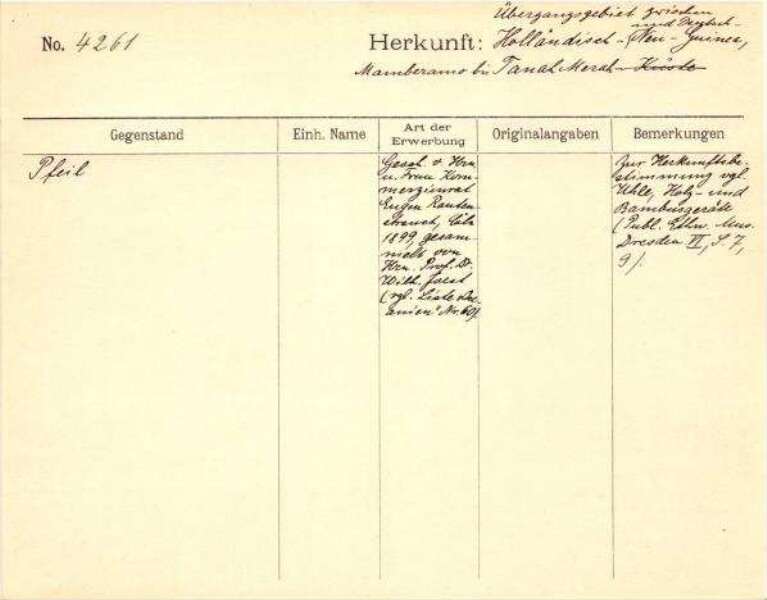 Übergangsgebiet zwischen
und Deutsch-
No. 4261 Herkunft: Holländisch-(Neu-Guinea,
Mamberamo bis Tanah Merah-Küste
Gegenstand
Einh. Name
Art der
Erwerbung
Originalangaben
Bemerkungen
Pfeil
Gesch. v. Hrn.
u. Frau Kom-
merzienrat
Eugen Rauten-
strauch, Cöln
1899, gesam-
melt von
Hrn. Prof. Dr.
Wilh. Joest
(vgl. Liste "Oze-
anien" Nr. 60).
Zur Herkunftsbe-
stimmung vgl.
Uhle, Holz- und
Bambusgeräte
(Publ. Ethn. Mus.
Dresden VI, S. 7,
9).